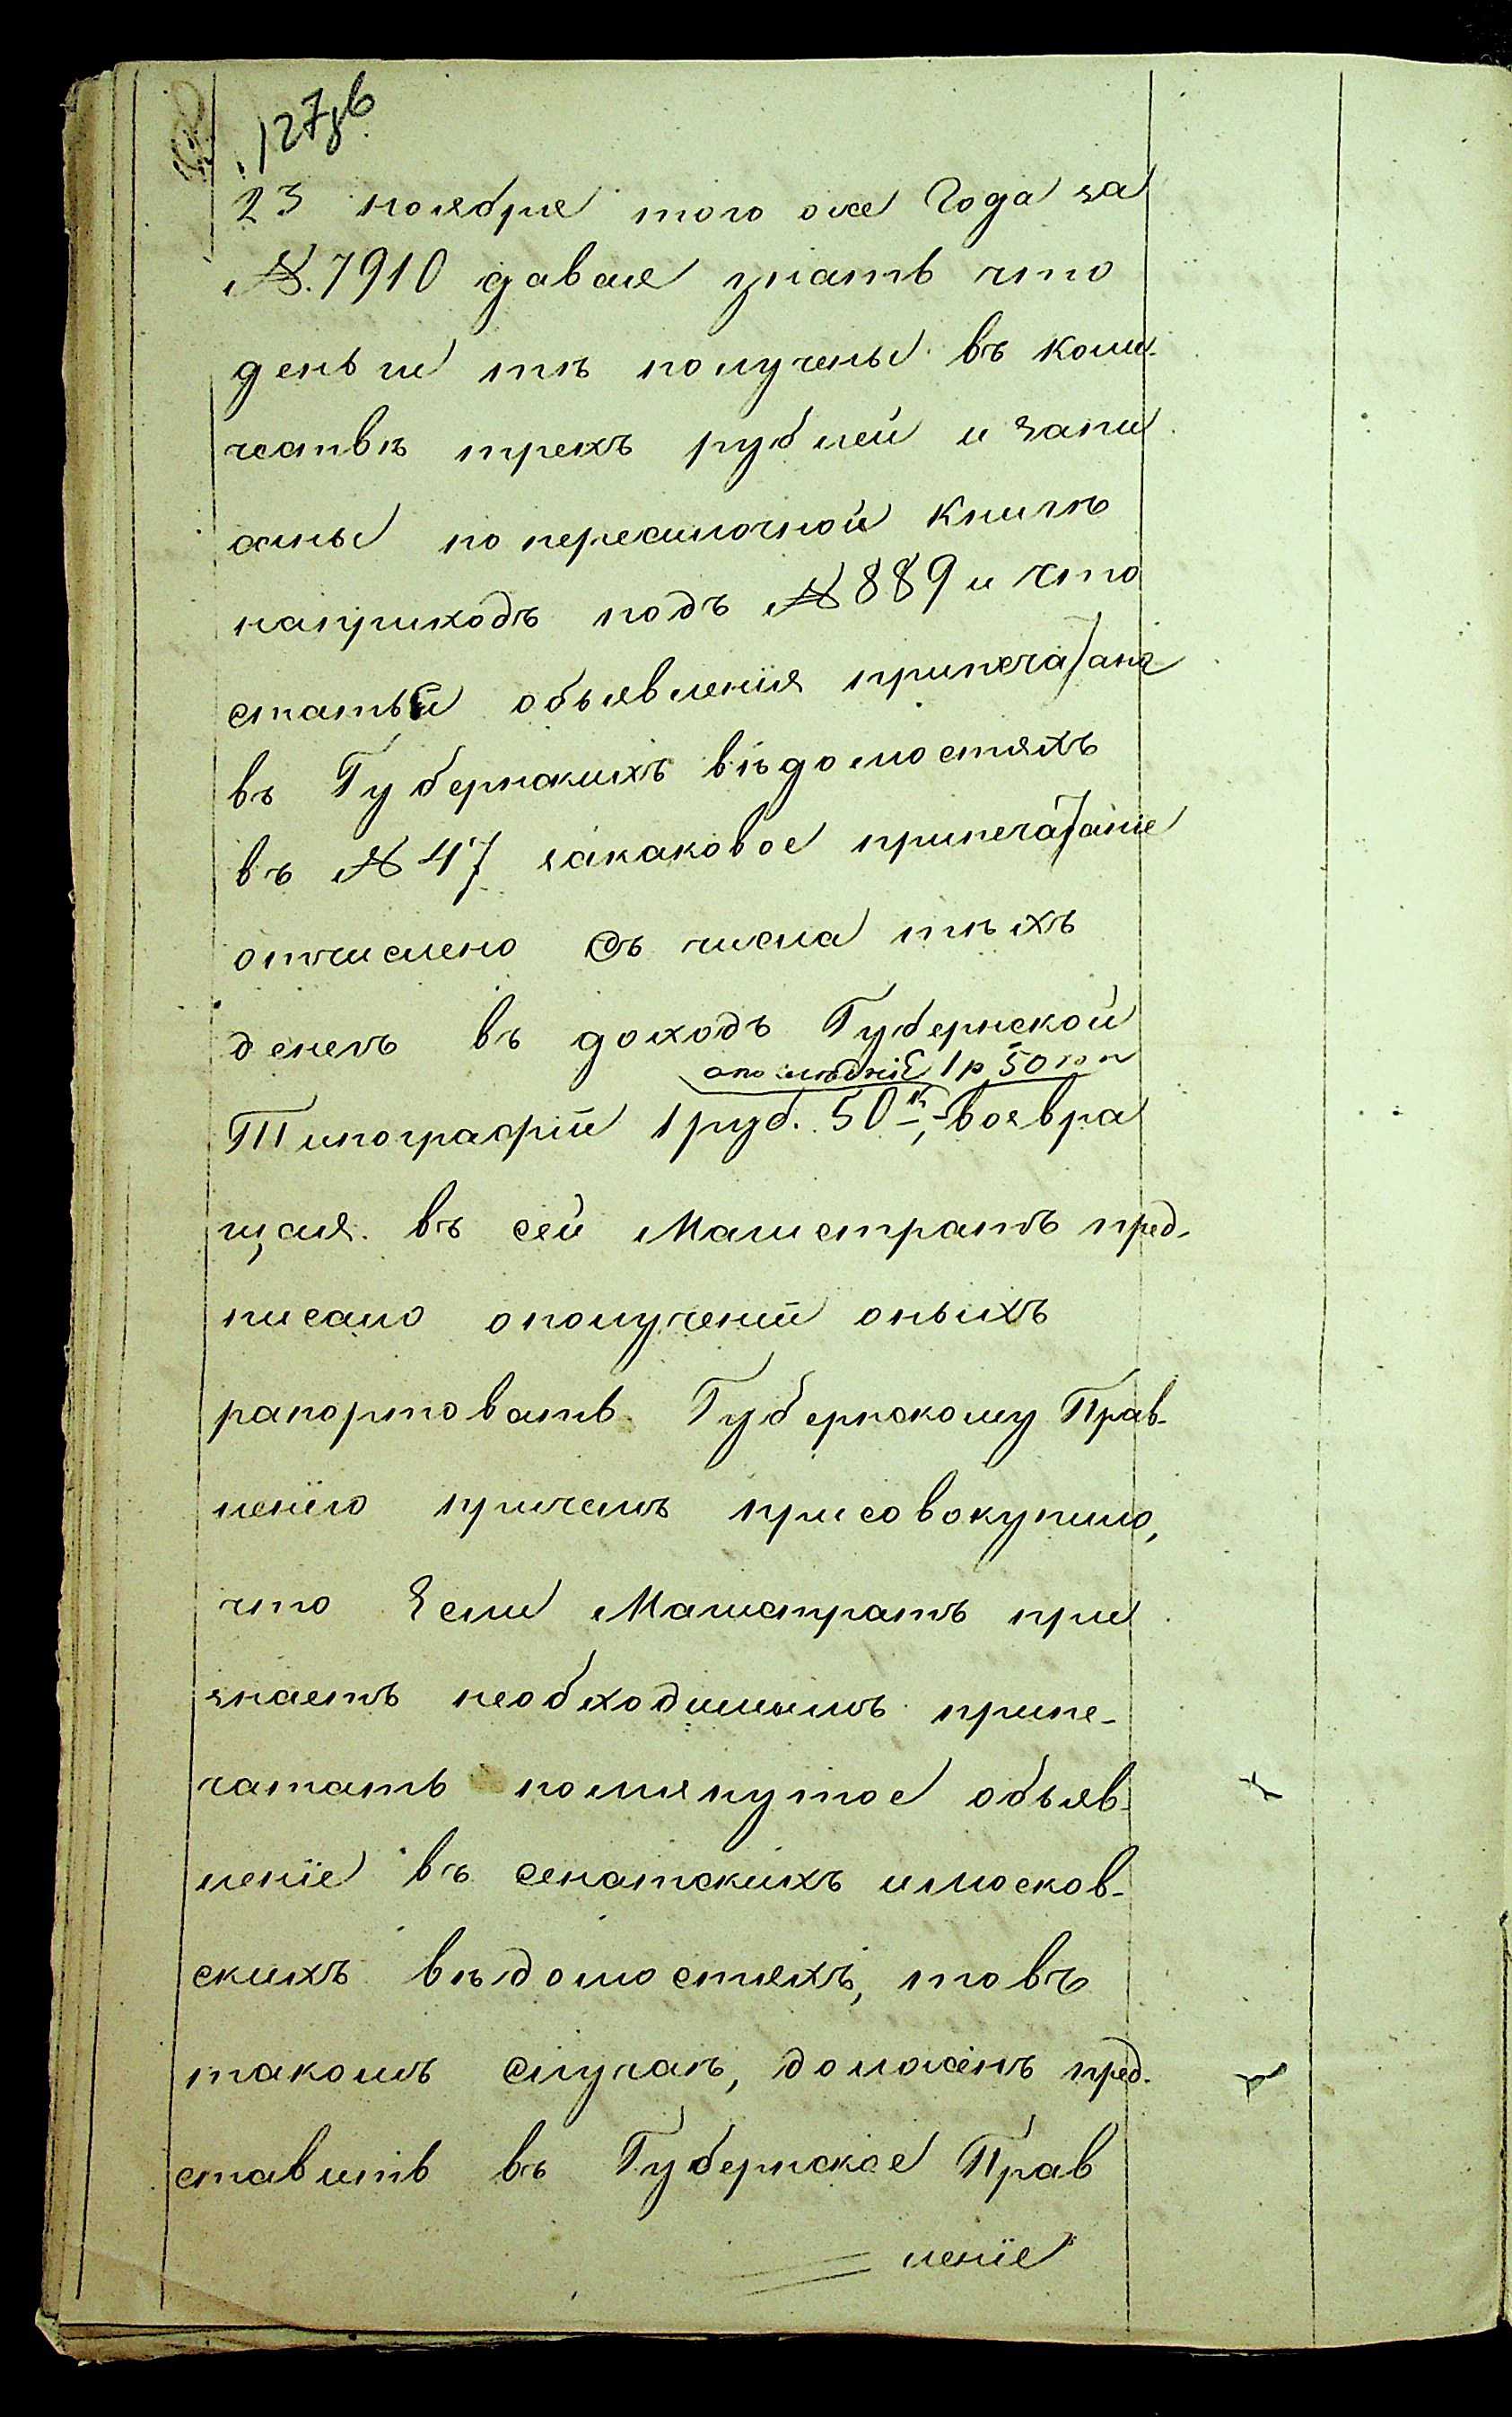 127об
23 ноября того же Года за
№. 7910 давая знать что
деньги тѣ получены въ коли-
чествѣ трехъ рублей и запи
саны по пересылочной Книгѣ
наприходъ подъ № 889 и что
статья объявленія припечатана
въ Губернскихъ вѣдомостяхъ
въ № 47 закаковое припечатаніе
отчислено съ числа тѣхъ
денегъ въ доходъ Губернской
апослѣдніе 1 р 50 коп
Типографіи 1 руб. 50 к., возвра
щая въ сей Магистратъ пред-
писало ополученіи оныхъ
рапортовать Губернскому Прав-
ленію причемъ присовокупило,
что Если Магистратъ при
знаетъ необходимымъ припе-
чатать помянутое объяв-
леніе въ сенатскихъ имосков-
скихъ вѣдомостяхъ, товъ
такомъ случаѣ, долженъ пред-
ставить въ Губернское Прав
леніе